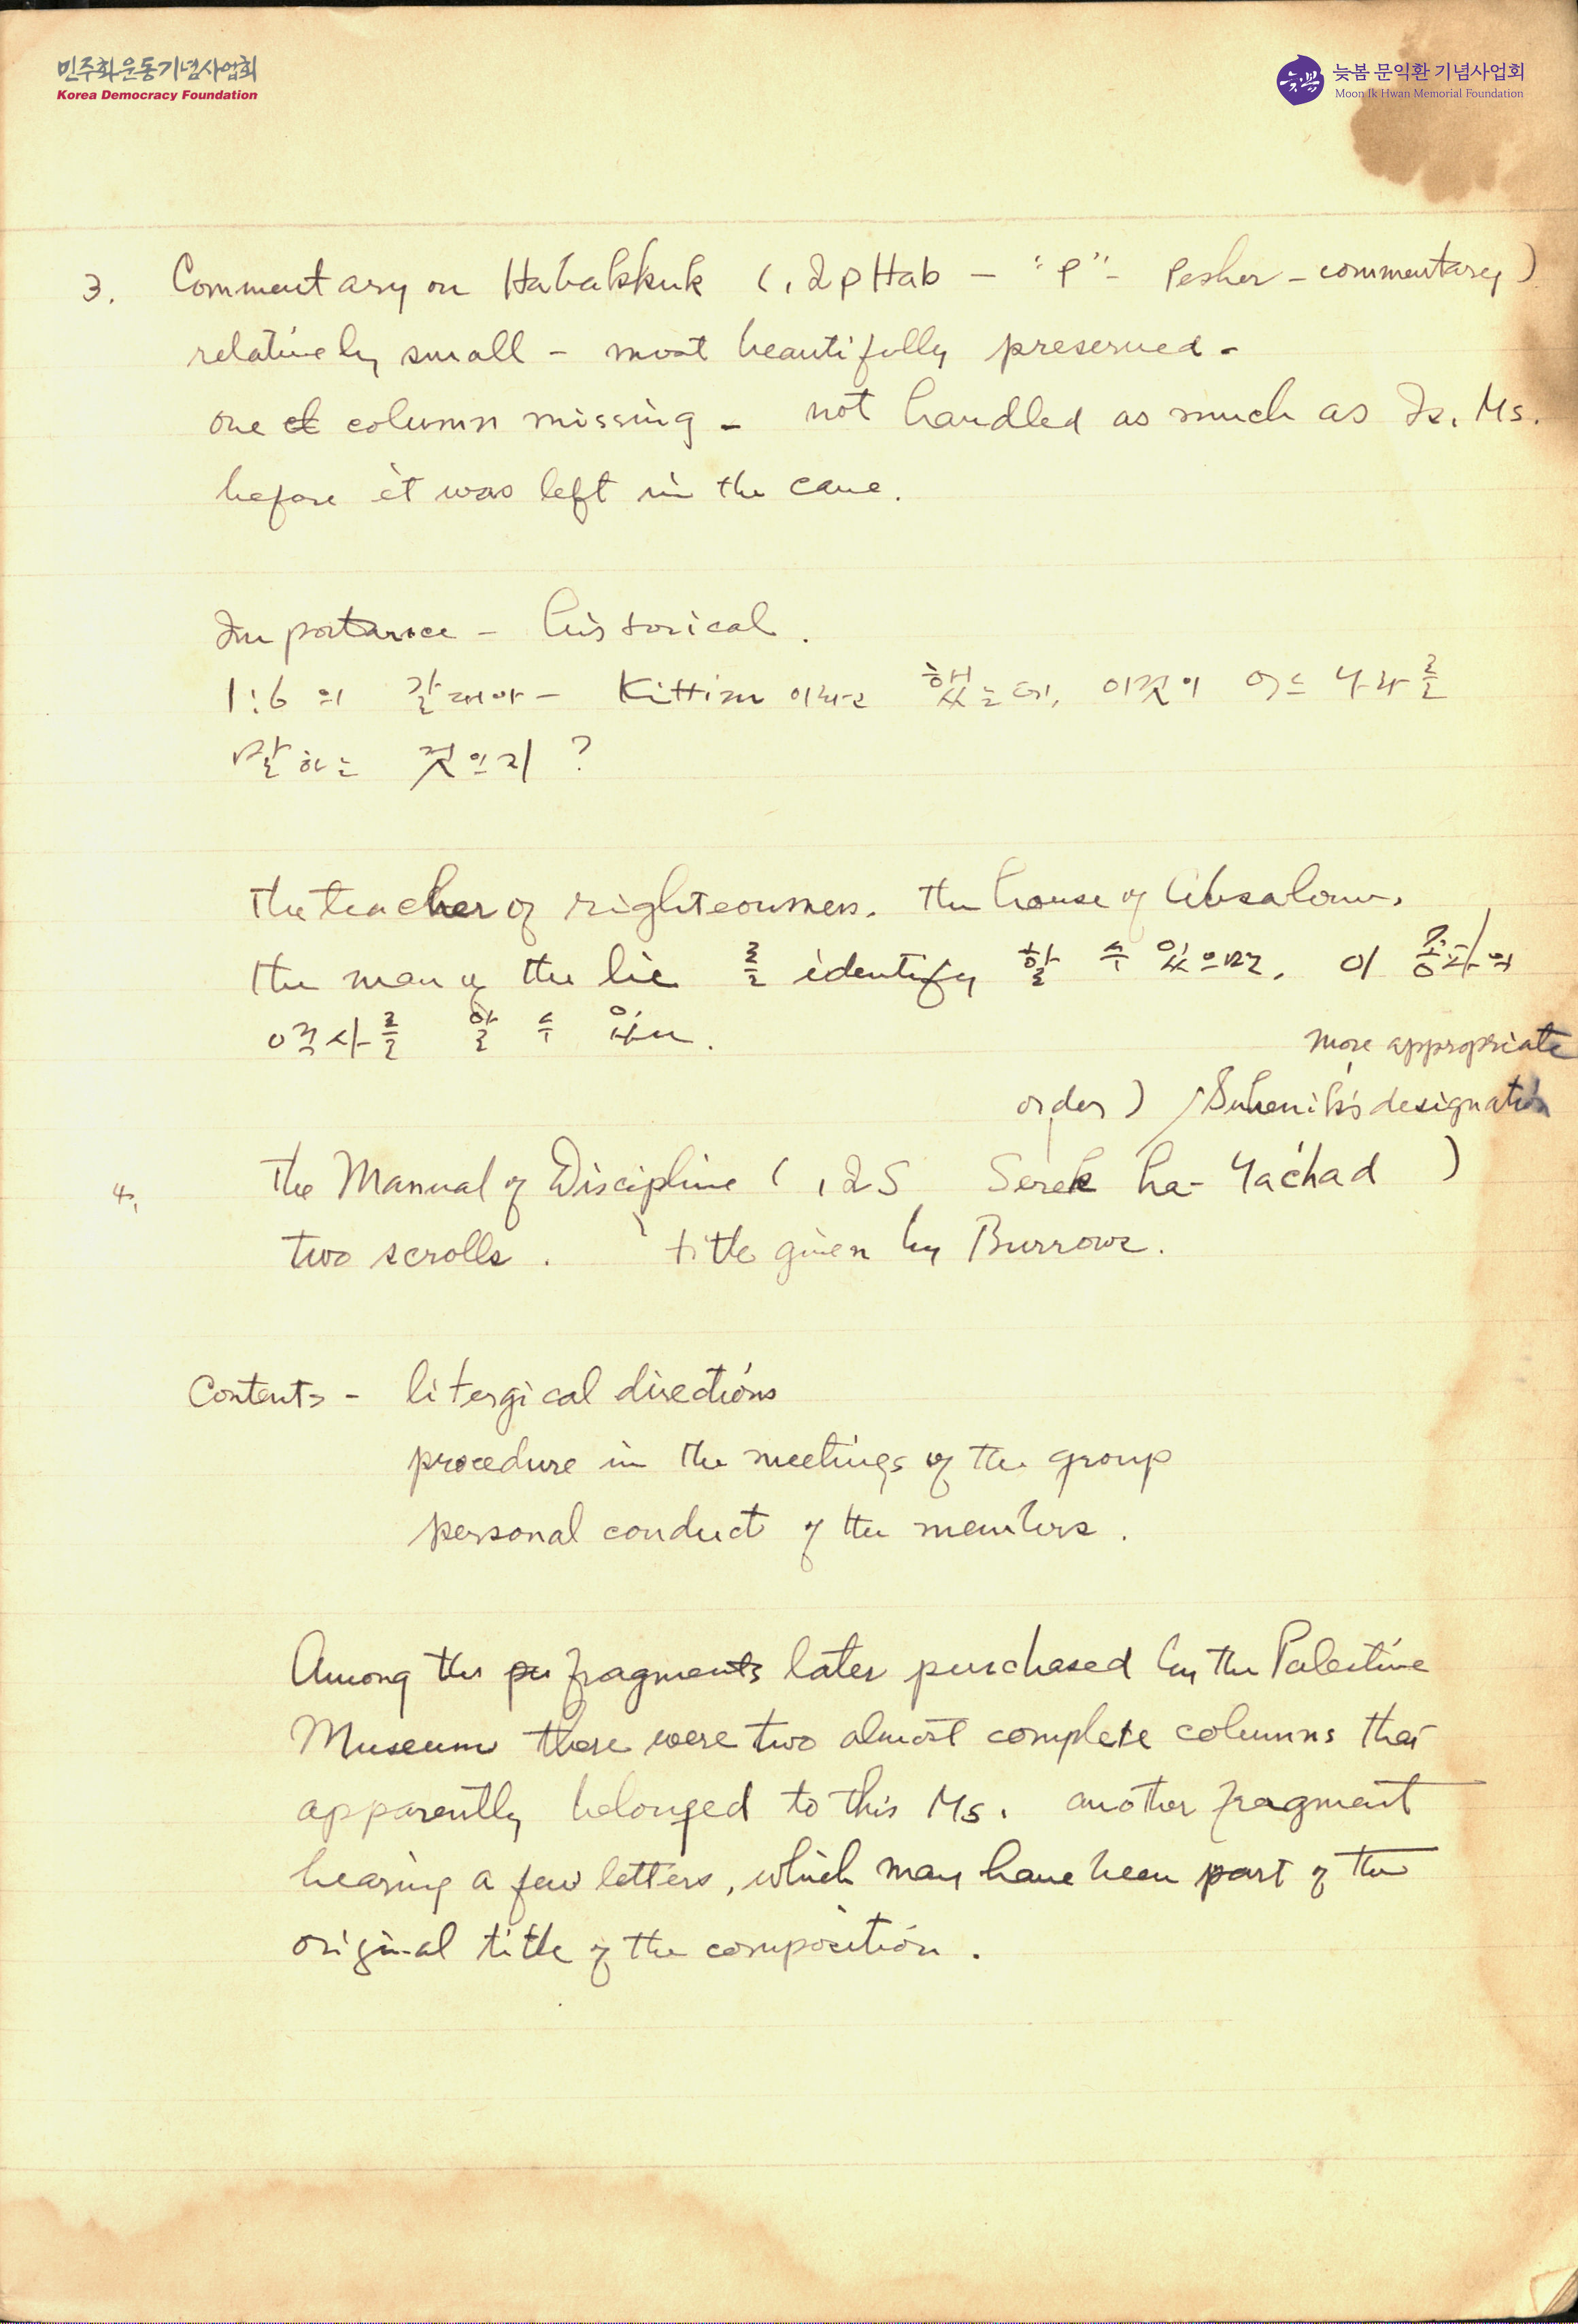 민주화운동기념사업회
Korea Democracy Foundation
늦봄
늦봄 문익환 기념사업회
Moon Ik Hwan Memorial Foundation
3. Commentary on Habakkuk (1QpHab - "P" - Pesher - commentary)
relatively small - most beautifully preserved -
one column missing - not handled as much as Is. Ms.
before it was left in the cave.
Importance - historical.
1:6 의 갈대아 - Kittim 이라고 했는데, 이것이 어느 나라를
말하는 것인지?
The teacher of righteousness. The house of Absalom.
the man of the lie 를 identify 할 수 있으면, 이 종파의
역사를 알 수 있다.
more appropriate
order) Sukenik's designation
4. The Manual of Discipline (1QS Serek ha-Yachad)
two scrolls. title given by Burrows.
Contents - litergical directions
procedure in the meetings of the group
personal conduct of the members.
Among the fragments later purchased by the Palestine
Museum there were two almost complete columns that
apparently belonged to this Ms. another fragment
bearing a few letters, which may have been part of the
original title of the composition.